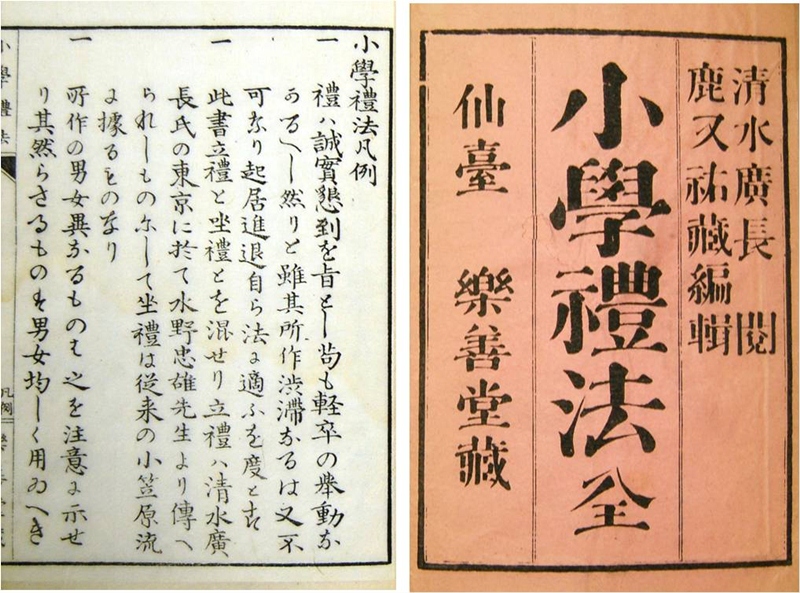 清水廣長 閲
鹿又祐藏編輯
小學禮法 全
仙臺 樂善堂藏
小學禮法凡例
一 禮ハ誠實懇到を旨とし苟も軽卒の舉動な
かるへし然りと雖其所作渋滞なるは又不
可なり起居進退自ら法に適ふを度とす
一 此書立禮と坐禮とを混せり立禮ハ清水廣
長氏の東京に於て水野忠雄先生より傳へ
られしものにして坐禮は従来の小笠原流
に據るものなり
一 所作の男女異なるものは之を注意に示せ
り其然らさるものは男女均しく用ゐへき
小學禮法 凡例